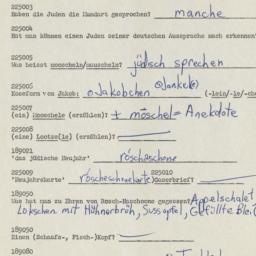 225003
Haben die Juden die Mundart gesprochen? manche
225004
Hat man können einen Juden seiner deutschen Aussprache nach erkennen?
225005
Was heisst mooscheln/mauscheln? jüdisch sprechen
225006
Koseform von Jakob: Jakobchen Jankele (-lein/-le/-che
225007
(ein) Mooschele (erzählen)? + möschel = Anekdote
225008
(eine) Lootse(le) (erzählen)?
189021
'das jüdische Neujahr' röschaschone
225009 225010
'Neujahrskarte' röscheschonekarte Gooserbrief?
189050
Was hat man zu Ihren von Rosch-Haschoone gegessen? Apfelschalet
Lokschen mit Hühnerbrüh, Süssapfel, Gefüllte
189050
Einen (Schaafs-, Fisch-)Kopf?
189080